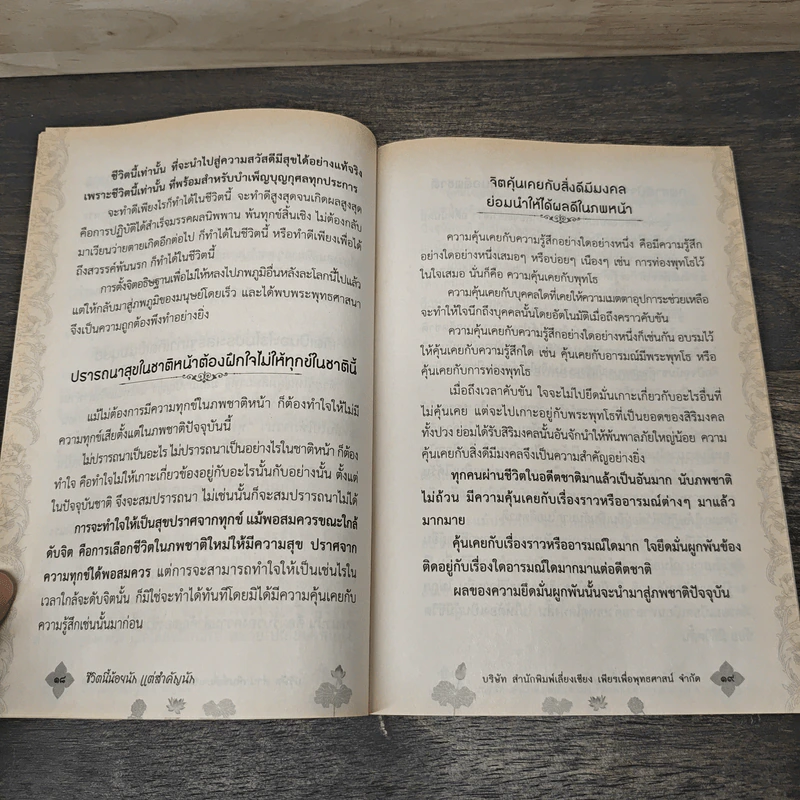 ชีวิตนี้เท่านั้น ที่จะนำไปสู่ความสวัสดีมีสุขได้อย่างแท้จริง
เพราะชีวิตนี้เท่านั้น ที่พร้อมสำหรับบำเพ็ญบุญกุศลทุกประการ
จะทำดีเพียงไรก็ทำได้ในชีวิตนี้ จะทำดีสูงสุดจนเกิดผลสูงสุด
คือการปฏิบัติได้สำเร็จมรรคผลนิพพาน พ้นทุกข์สิ้นเชิง ไม่ต้องกลับ
มาเวียนว่ายตายเกิดอีกต่อไป ก็ทำได้ในชีวิตนี้ หรือทำดีเพียงเพื่อได้
ถึงสวรรค์พ้นนรก ก็ทำได้ในชีวิตนี้
การตั้งจิตอธิษฐานเพื่อไม่ให้หลงไปภพภูมิอื่นหลังละโลกนี้ไปแล้ว
แต่ให้กลับมาสู่ภพภูมิของมนุษย์โดยเร็ว และได้พบพระพุทธศาสนา
จึงเป็นความถูกต้องพึงทำอย่างยิ่ง
ปรารถนาสุขในชาติหน้าต้องฝึกใจไม่ให้ทุกข์ในชาตินี้
แม้ไม่ต้องการมีความทุกข์ในภพชาติหน้า ก็ต้องทำใจให้ไม่มี
ความทุกข์เสียตั้งแต่ในภพชาติปัจจุบันนี้
ไม่ปรารถนาเป็นอะไร ไม่ปรารถนาเป็นอย่างไรในชาติหน้า ก็ต้อง
ทำใจ คือทำใจไม่ให้เกาะเกี่ยวข้องอยู่กับอะไรนั้นกับอย่างนั้น ตั้งแต่
ในปัจจุบันชาติ จึงจะสมปรารถนา ไม่เช่นนั้นก็จะสมปรารถนาไม่ได้
การจะทำใจให้เป็นสุขปราศจากทุกข์ แม้พอสมควรขณะใกล้
ดับจิต คือการเลือกชีวิตในภพชาติใหม่ให้มีความสุข ปราศจาก
ความทุกข์ได้พอสมควร แต่การจะสามารถทำใจให้เป็นเช่นไรใน
เวลาใกล้จะดับจิตนั้น ก็มิใช่จะทำได้ทันทีโดยมิได้มีความคุ้นเคยกับ
ความรู้สึกเช่นนั้นมาก่อน
๑๘ ชีวิตนี้น้อยนัก แต่สำคัญนัก
จิตคุ้นเคยกับสิ่งดีมีมงคล
ย่อมนำให้ได้ผลดีในภพหน้า
ความคุ้นเคยกับความรู้สึกอย่างใดอย่างหนึ่ง คือมีความรู้สึก
อย่างใดอย่างหนึ่งเสมอๆ หรือบ่อยๆ เนืองๆ เช่น การท่องพุทโธไว้
ในใจเสมอ นั่นก็คือ ความคุ้นเคยกับพุทโธ
ความคุ้นเคยกับบุคคลใดที่เคยให้ความเมตตาอุปการะช่วยเหลือ
จะทำให้ใจนึกถึงบุคคลนั้นโดยอัตโนมัติเมื่อถึงคราวคับขัน
ความคุ้นเคยกับความรู้สึกอย่างใดอย่างหนึ่งก็เช่นกัน อบรมไว้
ให้คุ้นเคยกับความรู้สึกใด เช่น คุ้นเคยกับอารมณ์มีพระพุทโธ หรือ
คุ้นเคยกับการท่องพุทโธ
เมื่อถึงเวลาคับขัน ใจจะไม่ไปยึดมั่นเกาะเกี่ยวกับอะไรอื่นที่
ไม่คุ้นเคย แต่จะไปเกาะอยู่กับพระพุทโธที่เป็นยอดของสิริมงคล
ทั้งปวง ย่อมได้รับสิริมงคลนั้นอันจักนำให้พ้นพาลภัยใหญ่น้อย ความ
คุ้นเคยกับสิ่งดีมีมงคลจึงเป็นความสำคัญอย่างยิ่ง
ทุกคนผ่านชีวิตในอดีตชาติมาแล้วเป็นอันมาก นับภพชาติ
ไม่ถ้วน มีความคุ้นเคยกับเรื่องราวหรืออารมณ์ต่างๆ มาแล้ว
มากมาย
คุ้นเคยกับเรื่องราวหรืออารมณ์ใดมาก ใจยึดมั่นผูกพันข้อง
ติดอยู่กับเรื่องใดอารมณ์ใดมากมาแต่อดีตชาติ
ผลของความยึดมั่นผูกพันนั้นจะนำมาสู่ภพชาติปัจจุบัน
บริษัท สำนักพิมพ์เลี่ยงเชียง เพียรเพื่อพุทธศาสน์ จำกัด ๑๙